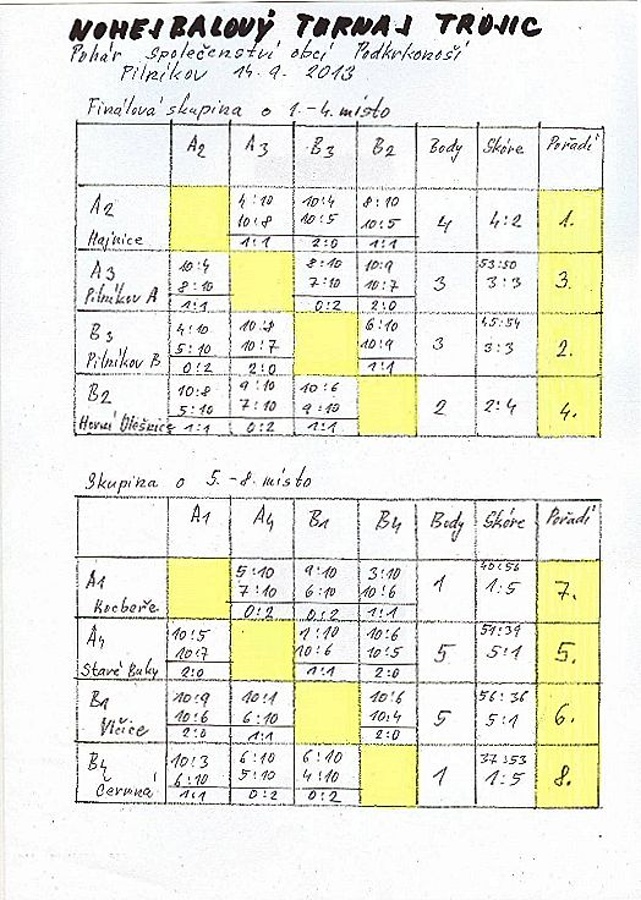 NOHEJBALOVÝ TURNAJ TROJIC
Pohár společenství obcí Podkrkonoší
Pilníkov 14.9.2013
Finálová skupina o 1.-4. místo
A2 A3 B3 B2 Body Skóre Pořadí
A2 4:10 10:4 8:10
10:8 10:5 10:5 4 4:2 1.
Hajnice 1:1 2:0 1:1
A3 10:4 8:10 10:9 53:50
8:10 7:10 10:7 3 3:3 3.
Pilníkov A 1:1 0:2 2:0
B3 4:10 10:8 6:10 45:54
5:10 10:7 10:9 3 3:3 2.
Pilníkov B 0:2 2:0 1:1
B2 10:8 9:10 10:6
5:10 7:10 9:10 2 2:4 4.
Horní Olešnice 1:1 0:2 1:1
Skupina o 5.-8. místo
A1 A4 B1 B4 Body Skóre Pořadí
A1 5:10 9:10 3:10 40:56
7:10 6:10 10:6 1 1:5 7.
Kocbeře 0:2 0:2 1:1
A4 10:5 1:10 10:6 51:39
10:7 10:6 10:5 5 5:1 5.
Staré Buky 2:0 1:1 2:0
B1 10:9 10:1 10:6 56:36
10:6 6:10 10:4 5 5:1 6.
Vlčice 2:0 1:1 2:0
B4 10:3 6:10 6:10 37:53
6:10 5:10 4:10 1 1:5 8.
Čermná 1:1 0:2 0:2